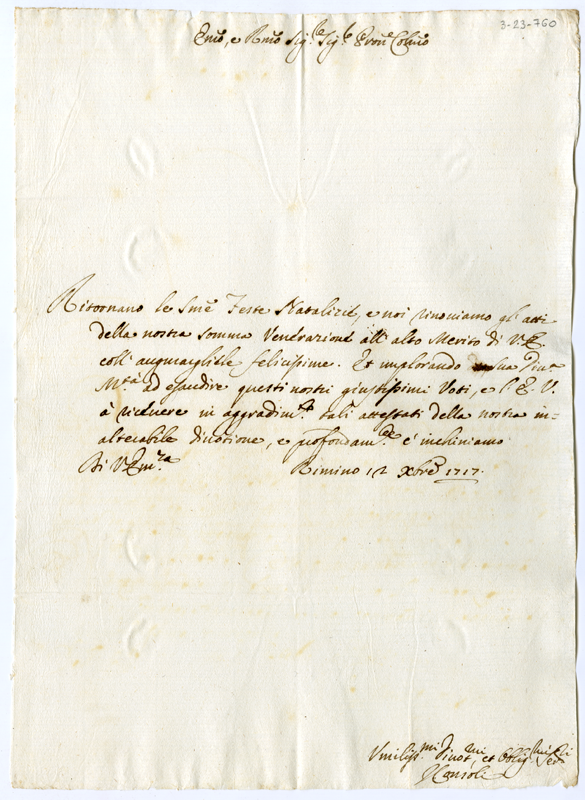 3-23-760
Emõ, e Rmõ Sig.re Sig.re Pron̄e Colmõ
Ritornano le Smẽ Feste Natalizie, e noi rinoviamo gl'atti
della nostra somma Venerazione all'alto Merito di V. E.
coll'augurargliele felicissime. Et implorando sua Diu.a
M.tà ad esaudire questi nostri giustissimi Voti, e l'E. V.
à riceuere in aggradim.to tali attestati della nostra in=
alterabile diuotione, e profondam.te c'inchiniamo
Di V. Em.za Rimino 12 Xbre 1717.
Vmiliss.mi Diuot.mi et Oblig.mi Ser.ri
I Consoli